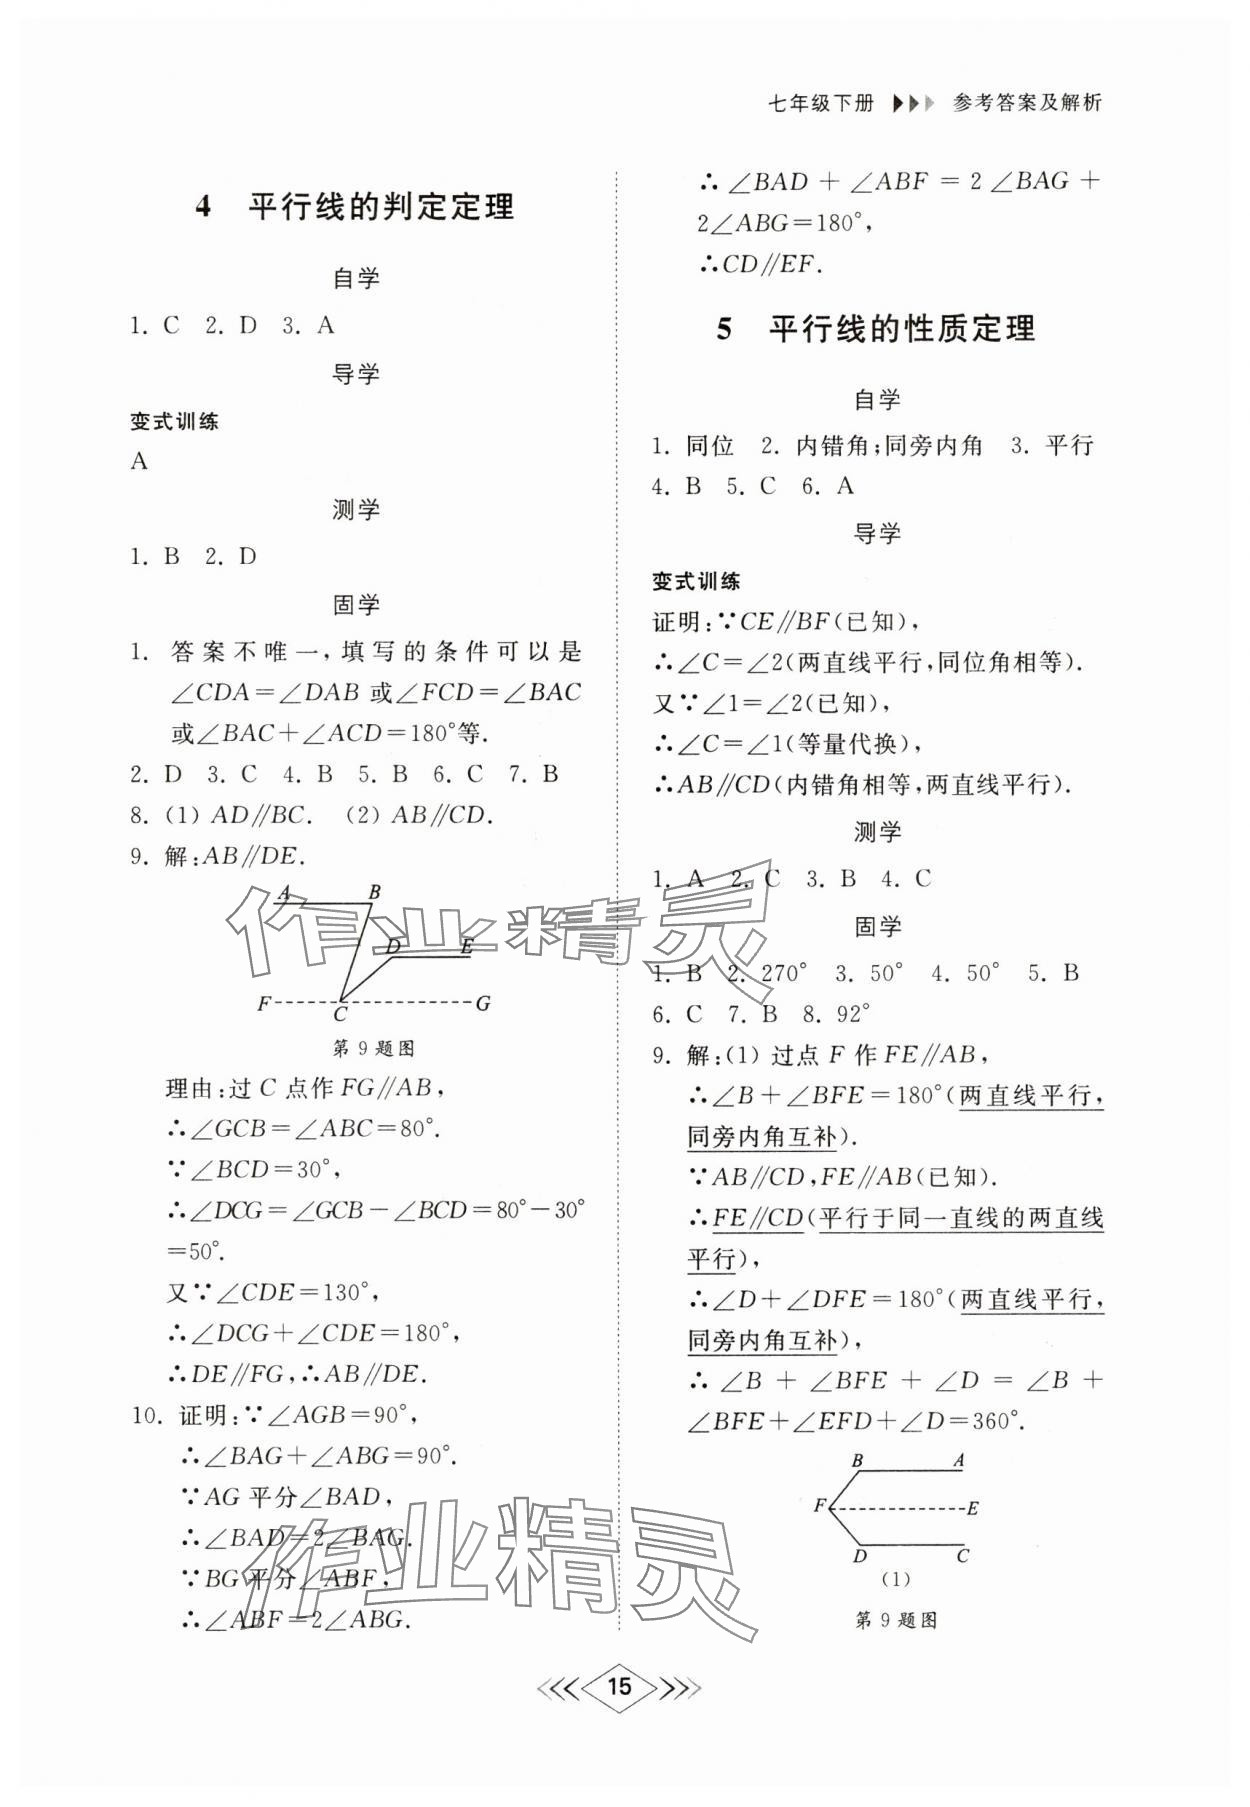 七年级下册 参考答案及解析
4 平行线的判定定理
自学
1. C 2. D 3. A
导学
变式训练
A
测学
1. B 2. D
固学
1. 答案不唯一,填写的条件可以是
∠CDA=∠DAB 或∠FCD=∠BAC
或∠BAC+∠ACD=180°等.
2. D 3. C 4. B 5. B 6. C 7. B
8. (1) AD∥BC. (2) AB∥CD.
9. 解:AB∥DE.
A B
D E
F G
C
第 9 题图
理由:过 C 点作 FG∥AB,
∴∠GCB=∠ABC=80°.
∵∠BCD=30°,
∴∠DCG=∠GCB-∠BCD=80°-30°
=50°.
又∵∠CDE=130°,
∴∠DCG+∠CDE=180°,
∴DE∥FG,∴AB∥DE.
10. 证明:∵∠AGB=90°,
∴∠BAG+∠ABG=90°.
∵AG 平分∠BAD,
∴∠BAD=2∠BAG.
∵BG 平分∠ABF,
∴∠ABF=2∠ABG.
∴∠BAD+∠ABF=2∠BAG+
2∠ABG=180°,
∴CD∥EF.
5 平行线的性质定理
自学
1. 同位 2. 内错角;同旁内角 3. 平行
4. B 5. C 6. A
导学
变式训练
证明:∵CE∥BF(已知),
∴∠C=∠2(两直线平行,同位角相等).
又∵∠1=∠2(已知),
∴∠C=∠1(等量代换),
∴AB∥CD(内错角相等,两直线平行).
测学
1. A 2. C 3. B 4. C
固学
1. B 2. 270° 3. 50° 4. 50° 5. B
6. C 7. B 8. 92°
9. 解:(1) 过点 F 作 FE∥AB,
∴∠B+∠BFE=180°(两直线平行,
同旁内角互补).
∵AB∥CD,FE∥AB(已知).
∴FE∥CD(平行于同一直线的两直线
平行),
∴∠D+∠DFE=180°(两直线平行,
同旁内角互补),
∴∠B+∠BFE+∠D=∠B+
∠BFE+∠EFD+∠D=360°.
B A
F E
D C
(1)
第 9 题图
作业精灵
作业精灵
15